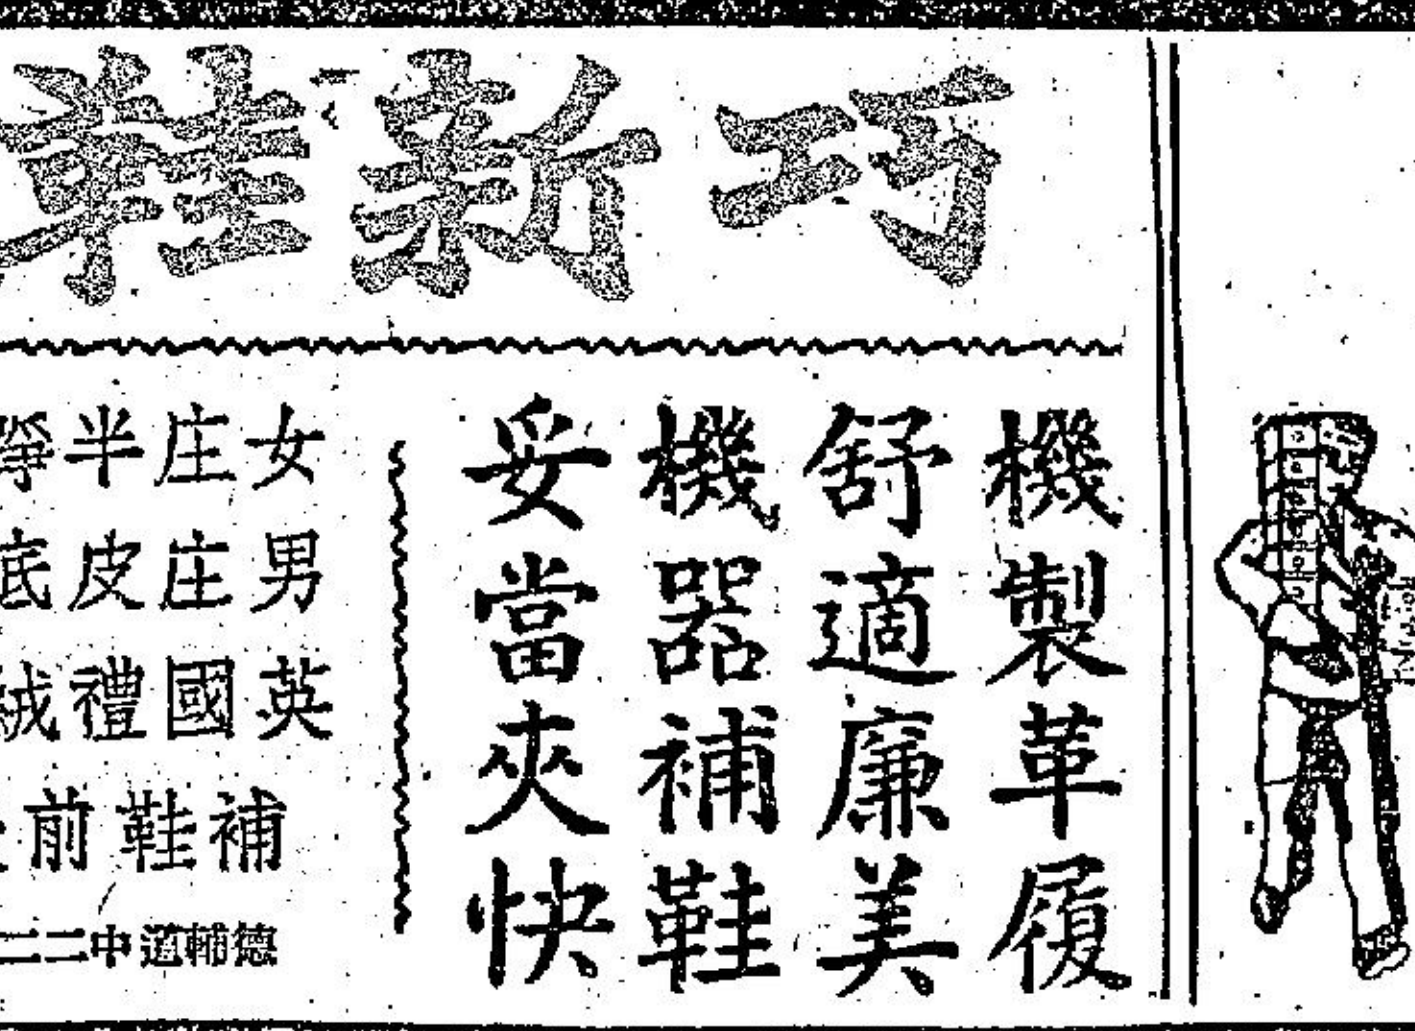 巧新鞋
機製革履
舒適廉美
機器補鞋
妥當夾快
女庄半
男庄皮底
英國禮絨
補鞋前
德輔道中二二